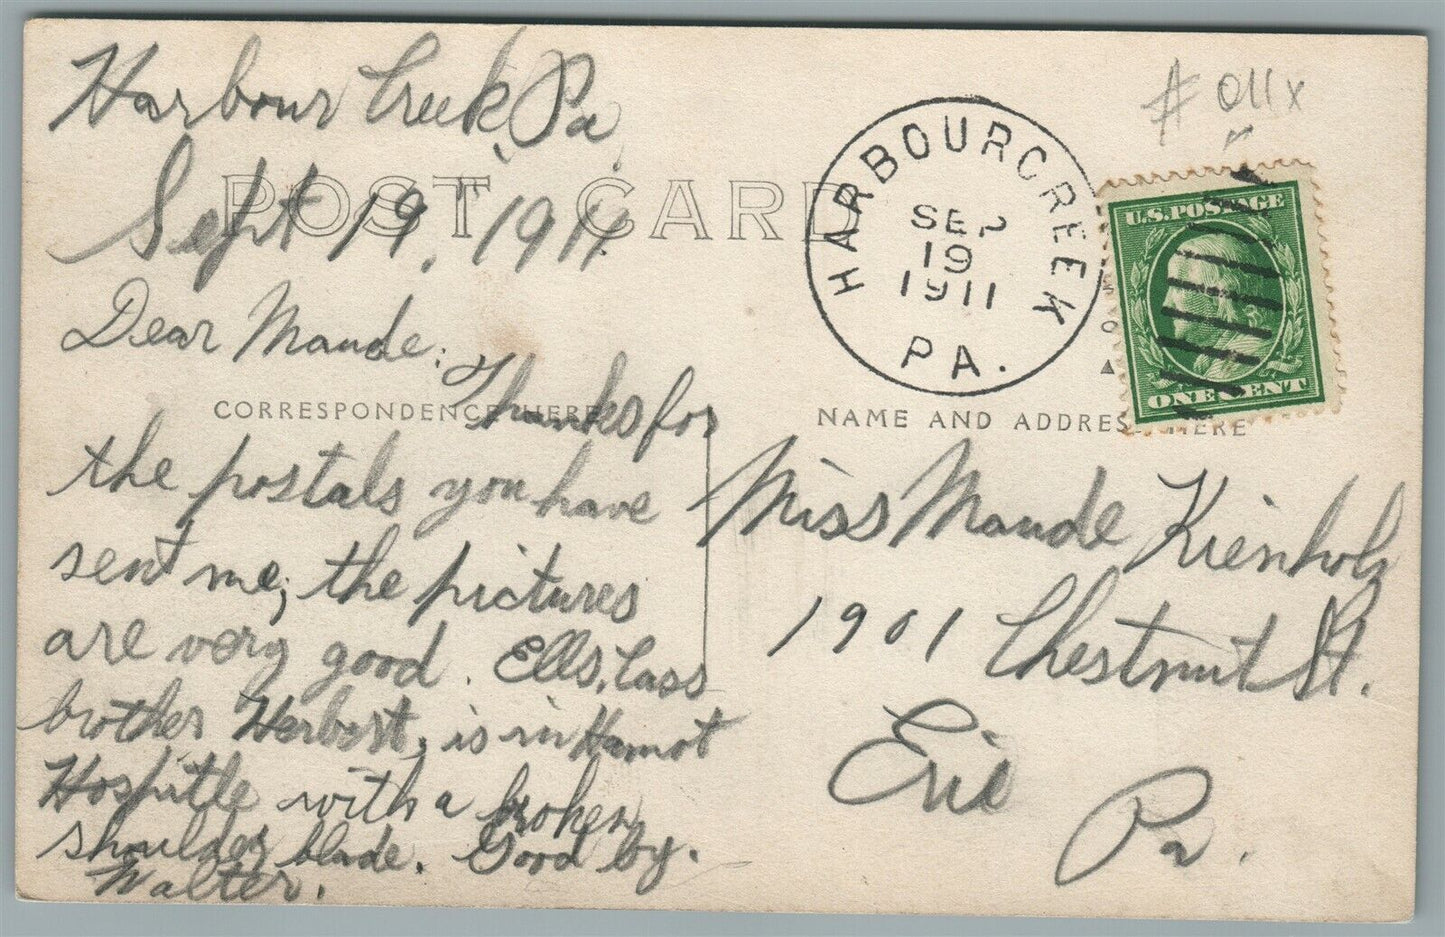 Harbour Creek, Pa.
Sept 19, 1911.
POST CARD
Dear Maude:
Thanks for
CORRESPONDENCE HERE
the postals you have
sent me; the pictures
are very good. Ells, Cass
brother Herbert, is in Hamot
Hospitle with a broken
shoulder blade. Good by.
Walter.
# 011x
HARBOURCREEK
SEP
19
1911
PA.
U.S. POSTAGE
ONE CENT
NAME AND ADDRESS HERE
Miss Maude Kienholz
1901 Chestnut St.
Erie
Pa.